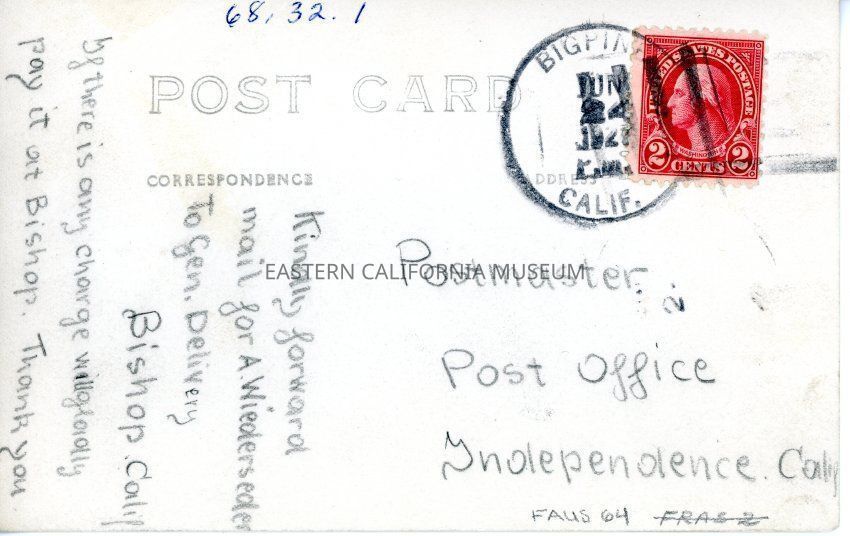 68.32.1
POST CARD
BIGPINE
JUN
24
CALIF.
UNITED STATES POSTAGE
WASHINGTON
2 CENTS 2
CORRESPONDENCE
ADDRESS
Kindly forward
mail for A. Wiederseder
To Gen. Delivery
Bishop. Calif
If there is any charge will gladly
pay it at Bishop. Thank you.
EASTERN CALIFORNIA MUSEUM
Postmaster
2.
Post Office
Independence. Calif
FALIS 64 FRAS 2